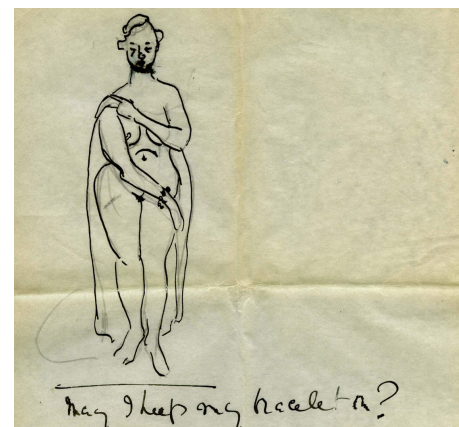 May I keep my bracelet on?